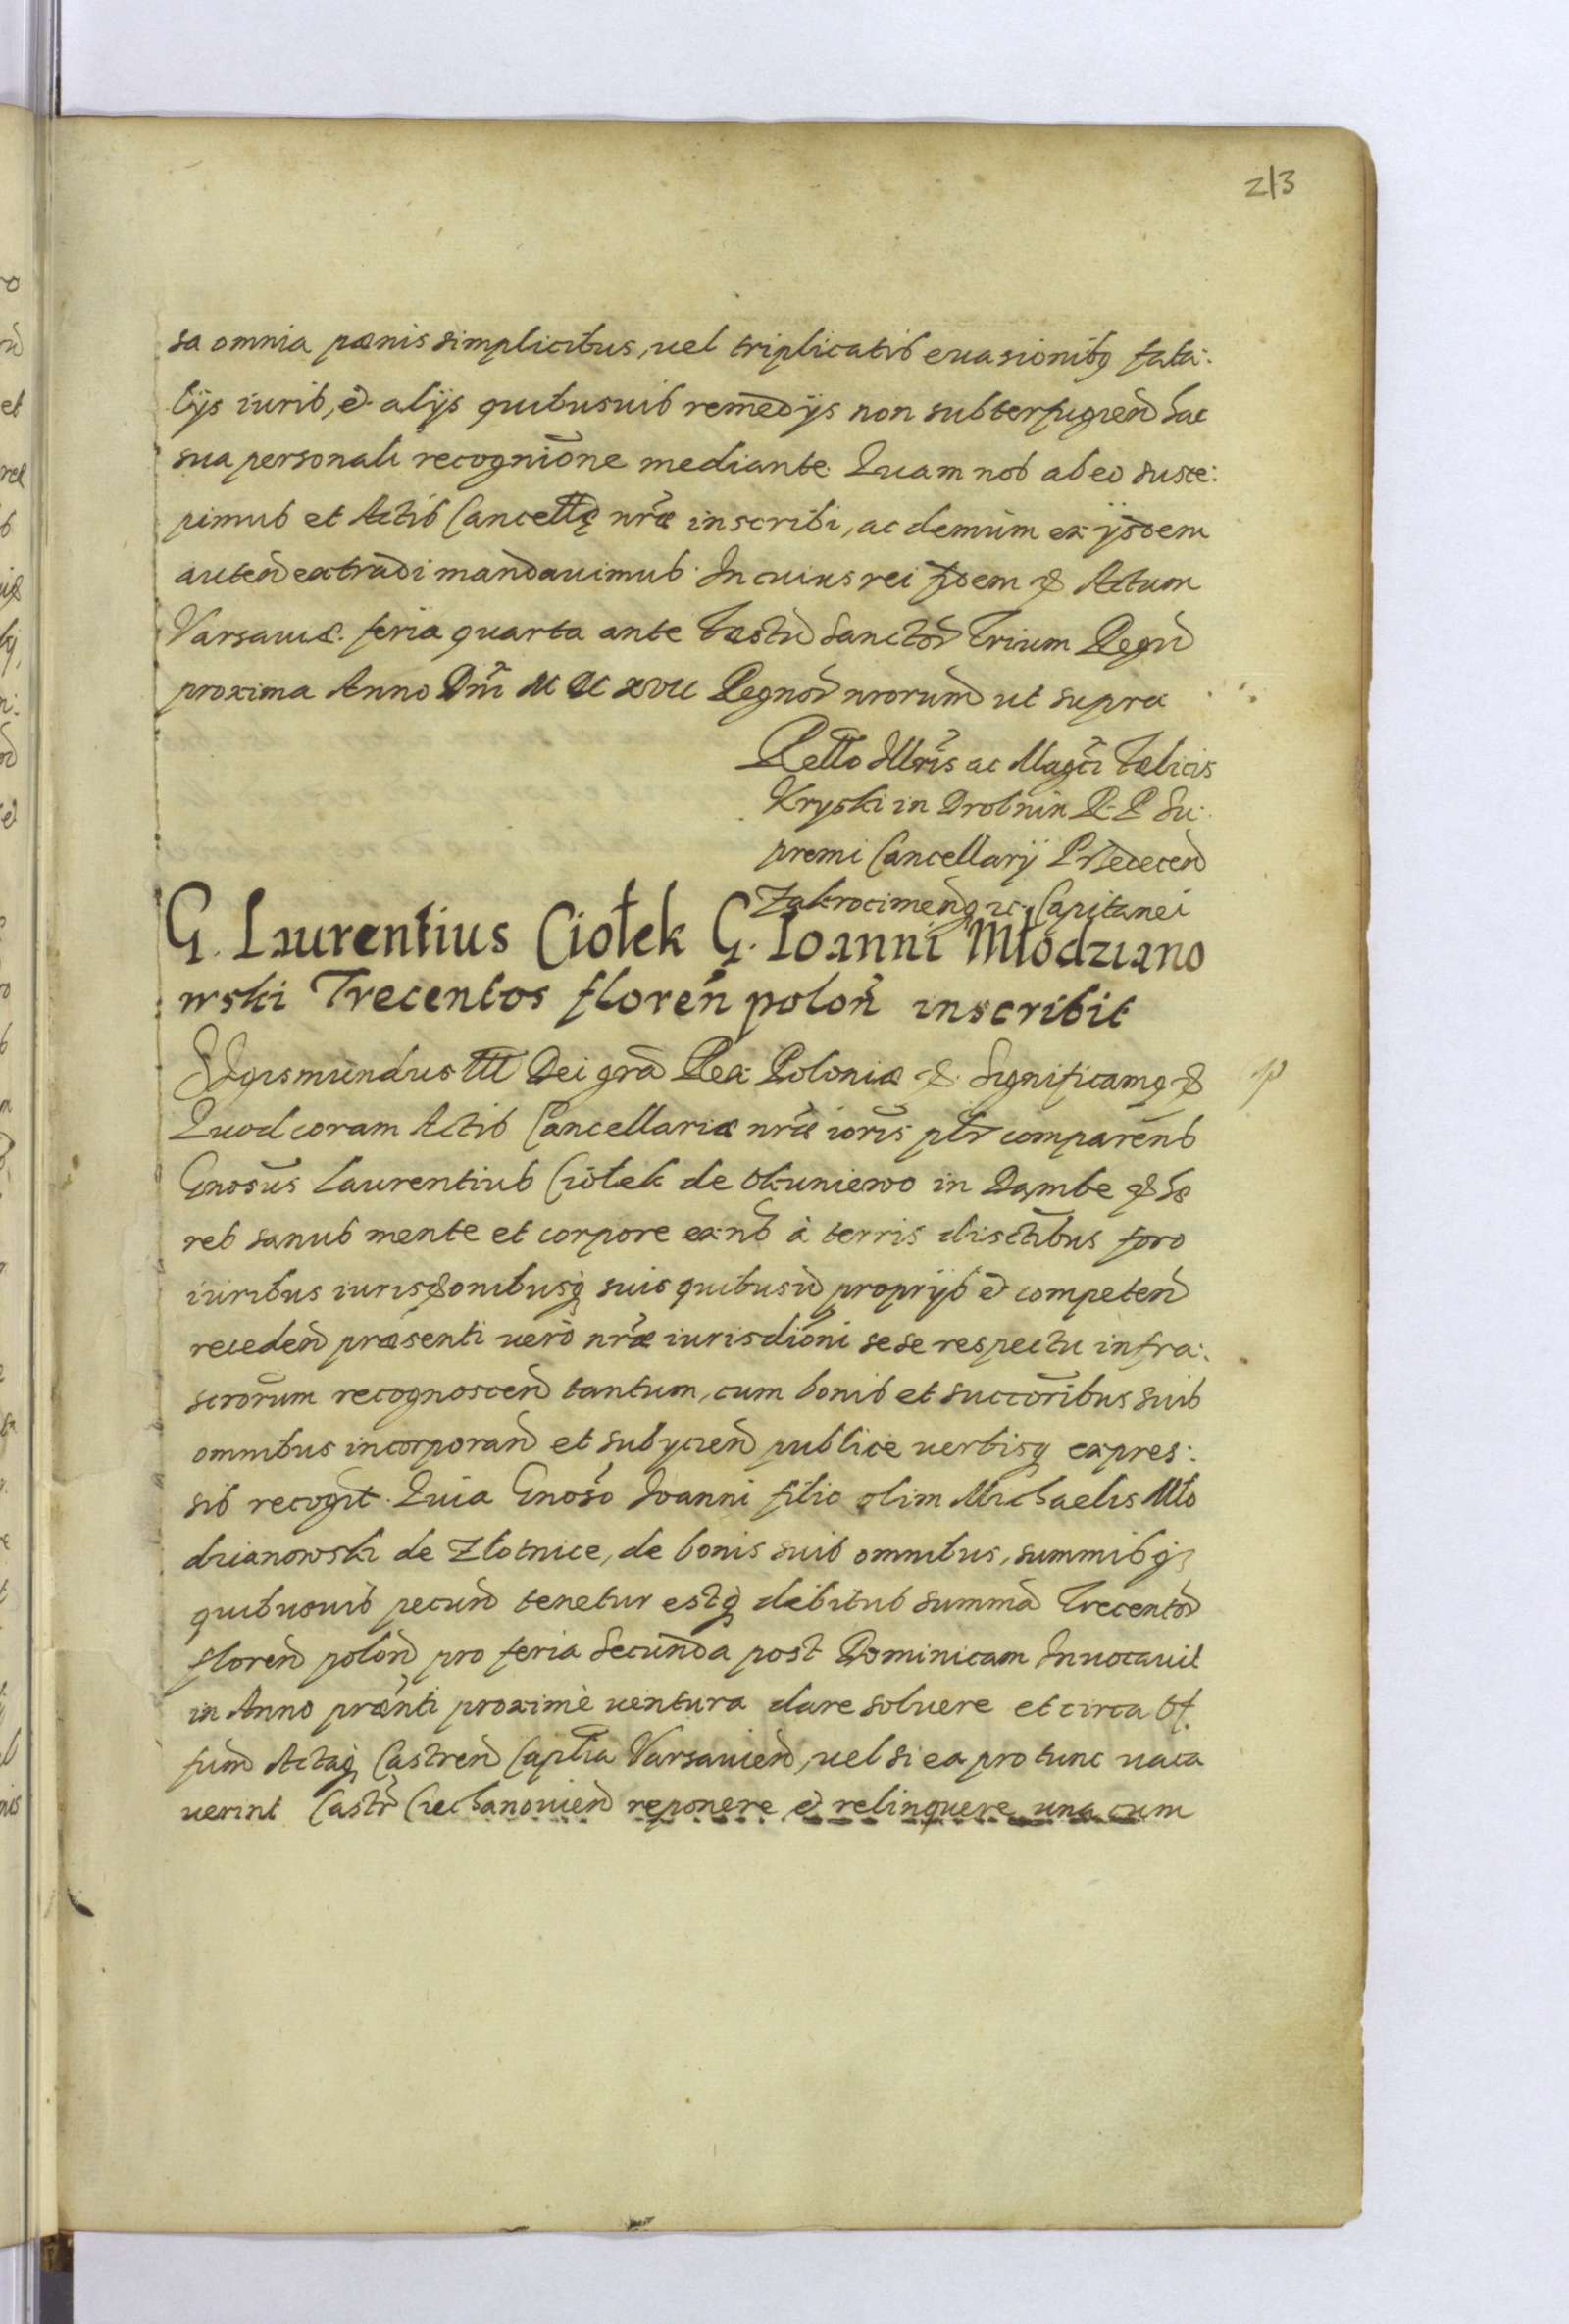 213
sa omnia pœnis simplicibus, uel triplicatis euasionibq fata:
lijs iuris, et alijs quibusuis remedijs non subterfugien hac
sua personali recognione mediante. Quam nos ab eo susce:
pimus et Actis Cancellę nræ inscribi, ac demùm ex ijsdem
auten extradi mandauimus. In cuius rei fidem & Actum
Varsauiæ feria quarta ante Festũ Sanctor Trium Regũ
proxima Anno Dni M DC XVII Regnor nrorum ut supra
Rello Illris ac Magci Fœlicis
Kryski in Drobnin R. P. Su:
premi Cancellarij
Zakrocimensq zc. Capitanei
G. Laurentius Ciołek G. Ioanni Młodziano
wski Trecentos floren polon inscribit
Sigismundus III Dei gra Rex Poloniæ &. Significamq &
Quod coram Actis Cancellariæ nræ ioris plr comparens
Gnosus Laurentius Ciołek de Okuniewo in Dąmbe & hæ
res sanus mente et corpore exns à terris disctibus foro
iuribus iurisdonibusq suis quibusũ proprijs et competen
receden præsenti uerò nræ iurisdioni sese respectu infra:
scrorum recognoscen tantum, cum bonis et succoribus suis
omnibus incorporan et subycien publice uerbisq expres:
sis recogit. Quia Gnoso Ioanni filio olim Michaelis Mło
dzianowski de Złotnice, de bonis suis omnibus, summisq
quibusuis pecun tenetur estq debitus summã Trecentor
floren polon pro feria Secunda post Dominicam Inuocauit
in Anno prænti proximè uentura dare soluere et circa Of
fium Actaq Castren Caplia Varsauien, uel si ea pro tunc uaca
uerint Castr Ciechanouien reponere et relinquere una cum